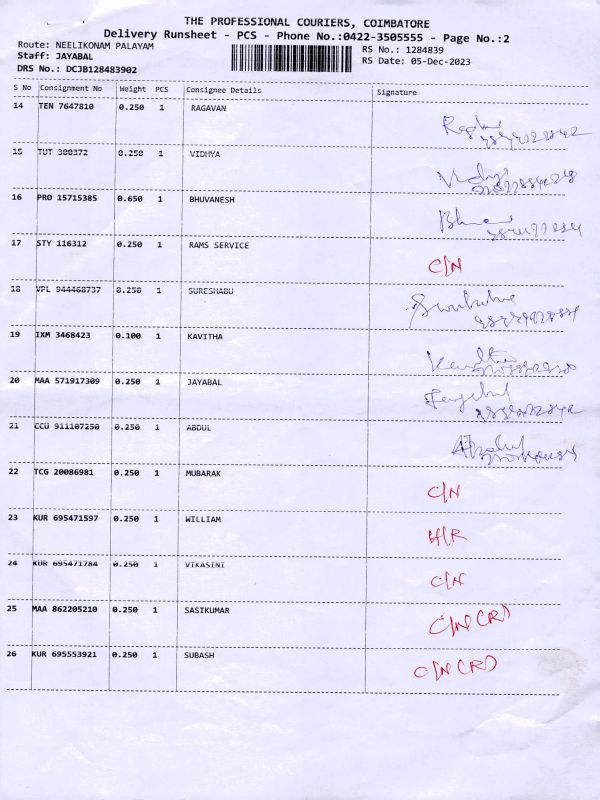 THE PROFESSIONAL COURIERS, COIMBATORE
Delivery Runsheet - PCS - Phone No.:0422-3505555 - Page No.:2
Route: NEELIKONAM PALAYAM RS No.: 1284839
Staff: JAYABAL RS Date: 05-Dec-2023
DRS No.: DCJB128483902
S No Consignment No Weight PCS Consignee Details Signature
14 TEN 7647810 0.250 1 RAGAVAN
15 TUT 300372 0.250 1 VIDHYA
16 PRO 15715385 0.650 1 BHUVANESH
17 STY 116312 0.250 1 RAMS SERVICE C/N
18 VPL 944468737 0.250 1 SURESHABU
19 IXM 3468423 0.100 1 KAVITHA
20 MAA 571917309 0.250 1 JAYABAL
21 CCU 911107250 0.250 1 ABDUL
22 TCG 20086981 0.250 1 MUBARAK C/N
23 KUR 695471597 0.250 1 WILLIAM
24 KUR 695471784 0.250 1 VIKASINI C/N
25 MAA 862205210 0.250 1 SASIKUMAR C/N(CR)
26 KUR 695553921 0.250 1 SUBASH C/N(CR)